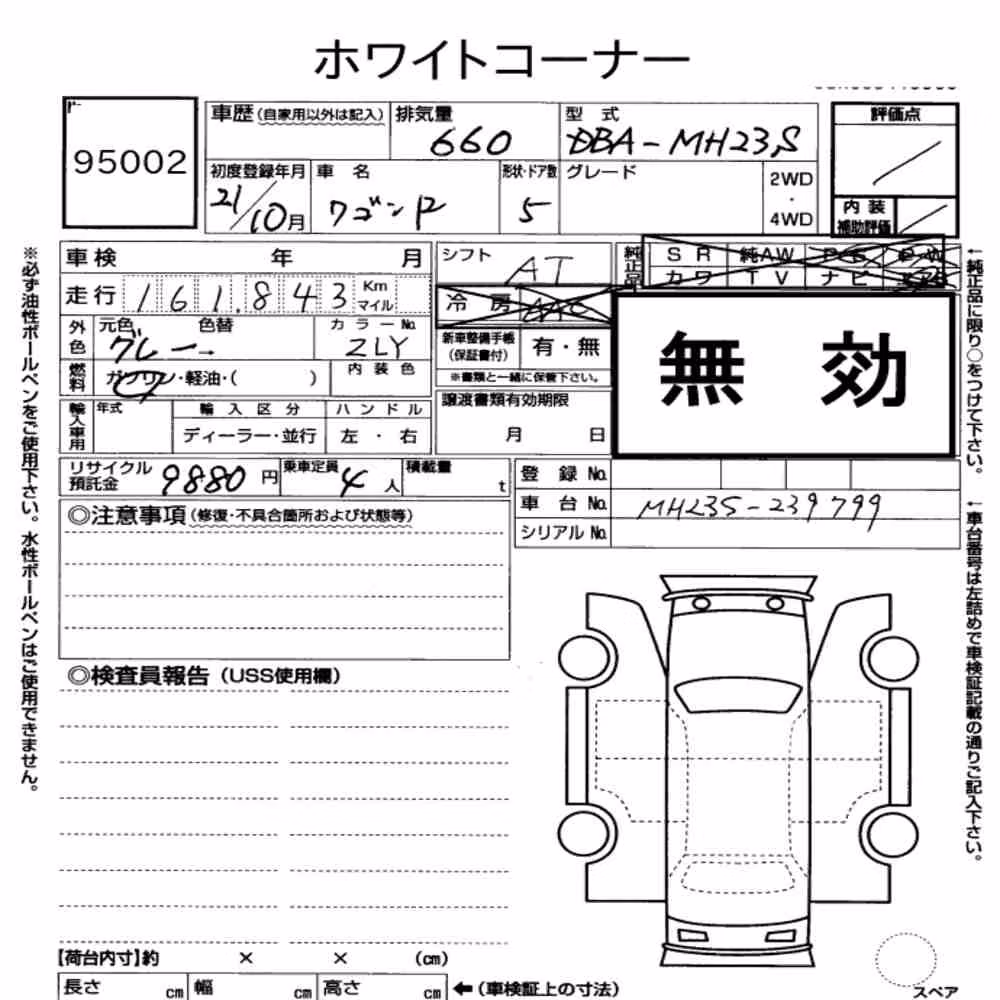 ホワイトコーナー
95002
車歴(自家用以外は記入)
排気量
660
型式
DBA-MH23S
評価点
初度登録年月
21/10月
車名
ワゴンR
形状・ドア数
5
グレード
2WD
・
4WD
内装
補助評価
車検 年 月
シフト
AT
純正品
SR 純AW PS PW
カワ TV ナビ エアB
走行 161,843 Km
マイル
冷房 AAC
外色
元色 色替
グレー
カラーNo.
ZLY
新車整備手帳
(保証書付)
有・無
※書類と一緒に保管下さい。
無効
燃料
ガソリン・軽油・( )
内装色
輸入車用
年式
輸入区分
ハンドル
ディーラー・並行
左・右
譲渡書類有効期限
月 日
リサイクル
預託金
9880円
乗車定員
4人
積載量
t
登録No.
車台No. MH23S-239799
シリアルNo.
◎注意事項(修復・不具合箇所および状態等)
◎検査員報告(USS使用欄)
【荷台内寸】約 × × (cm)
長さ cm 幅 cm 高さ cm ←(車検証上の寸法)
スペア
※必ず油性ボールペンをご使用下さい。水性ボールペンはご使用できません。
←純正品に限り○をつけて下さい。
←車台番号は左詰めで車検証記載の通りご記入下さい。